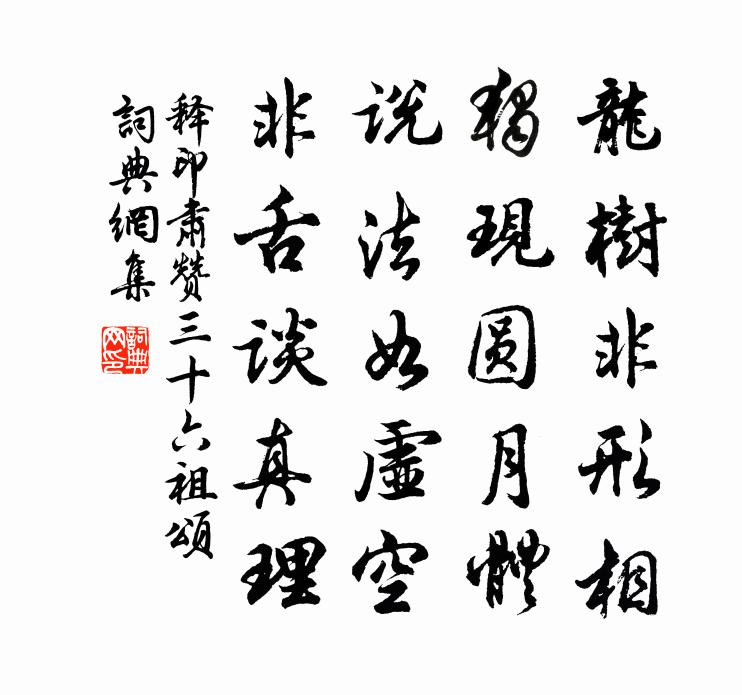 龍樹非形相
獨現圓月體
說法如虛空
非舌談真理
释印肅贊三十六祖頌
詞典網集
詞典網印